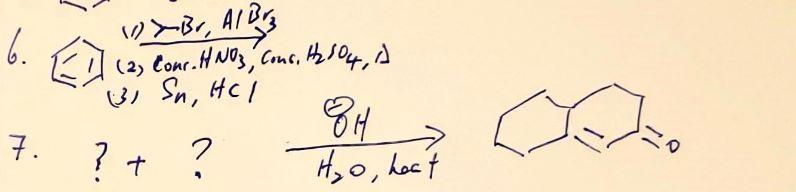 (1) >-Br, AlBr3
6. (2) Conc. HNO3, Conc. H2SO4, Δ
(3) Sn, HCl
⊖OH
7. ? + ?
H2O, heat
O